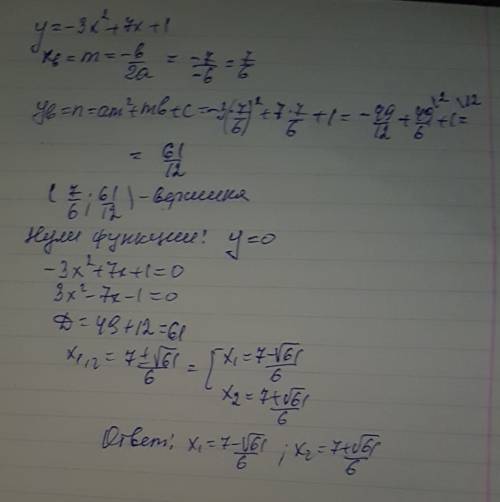 y=-3x²+7x+1
xв=m=-b/2a = -7/-6 = 7/6
yв=n=am²+mb+c=-3(7/6)²+7·7/6+1=-49/12+49/6\2+1\12=
= 61/12
(7/6; 61/12) - вершина
Нули функции! y=0
-3x²+7x+1=0
3x²-7x-1=0
D=49+12=61
x₁,₂=7±√61/6=[x₁=7-√61/6
x₂=7+√61/6
Ответ: x₁=7-√61/6; x₂=7+√61/6